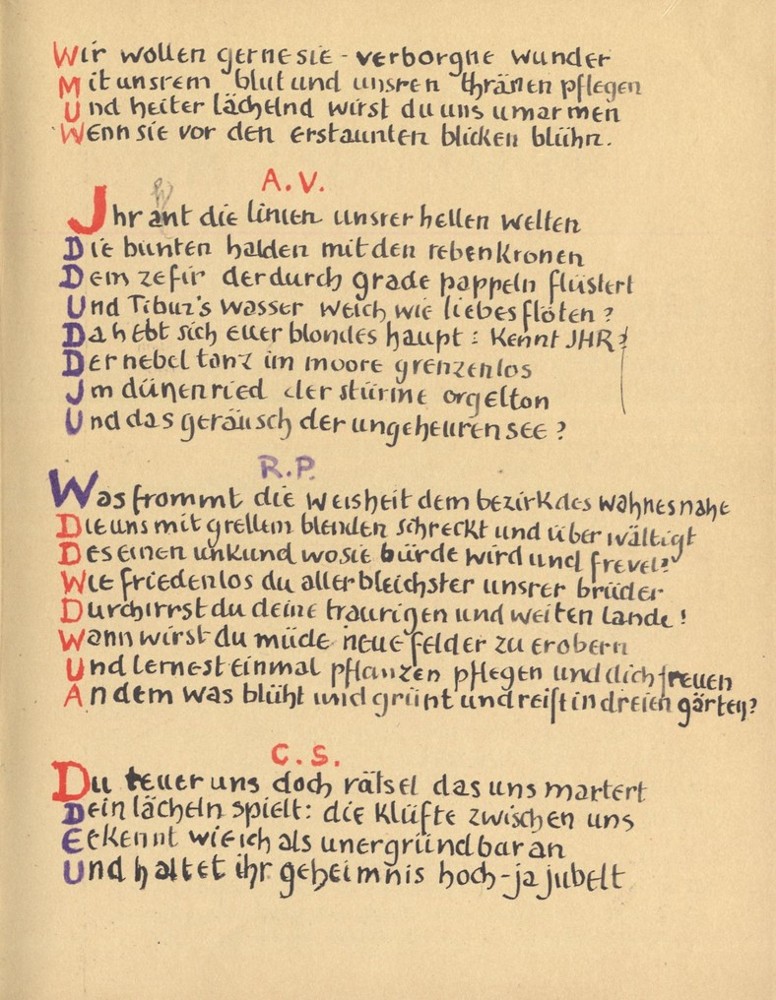 Wir wollen gerne sie - verborgne wunder
Mit unsrem blut und unsren thränen pflegen
Und heiter lächelnd wirst du uns umarmen
Wenn sie vor den erstaunten blicken blühn.
A. V.
Jhr ahnt die linien unsrer hellen welten
Die bunten halden mit den rebenkronen
Dem zefir der durch grade pappeln flüstert
Und Tibur's wasser weich wie liebesflöten?
Da hebt sich euer blondes haupt: Kennt JHR
Der nebel tanz im moore grenzenlos
Jm dünenried der stürme orgelton
Und das geräusch der ungeheuren see?
R. P.
Was frommt die weisheit dem bezirk des wahnes nahe
Die uns mit grellem blenden schreckt und überwältigt
Des einen unkund wo sie bürde wird und frevel?
Wie friedenlos du allerbleichster unsrer brüder
Durchirrst du deine traurigen und weiten lande!
Wann wirst du müde neue felder zu erobern
Und lernest einmal pflanzen pflegen und dich freuen
An dem was blüht und grünt und reift in dreien gärten?
C. S.
Du teuer uns doch rätsel das uns martert
Dein lächeln spielt: die klüfte zwischen uns
Erkennt wie ich als unergründbar an
Und haltet ihr geheimnis hoch - ja jubelt